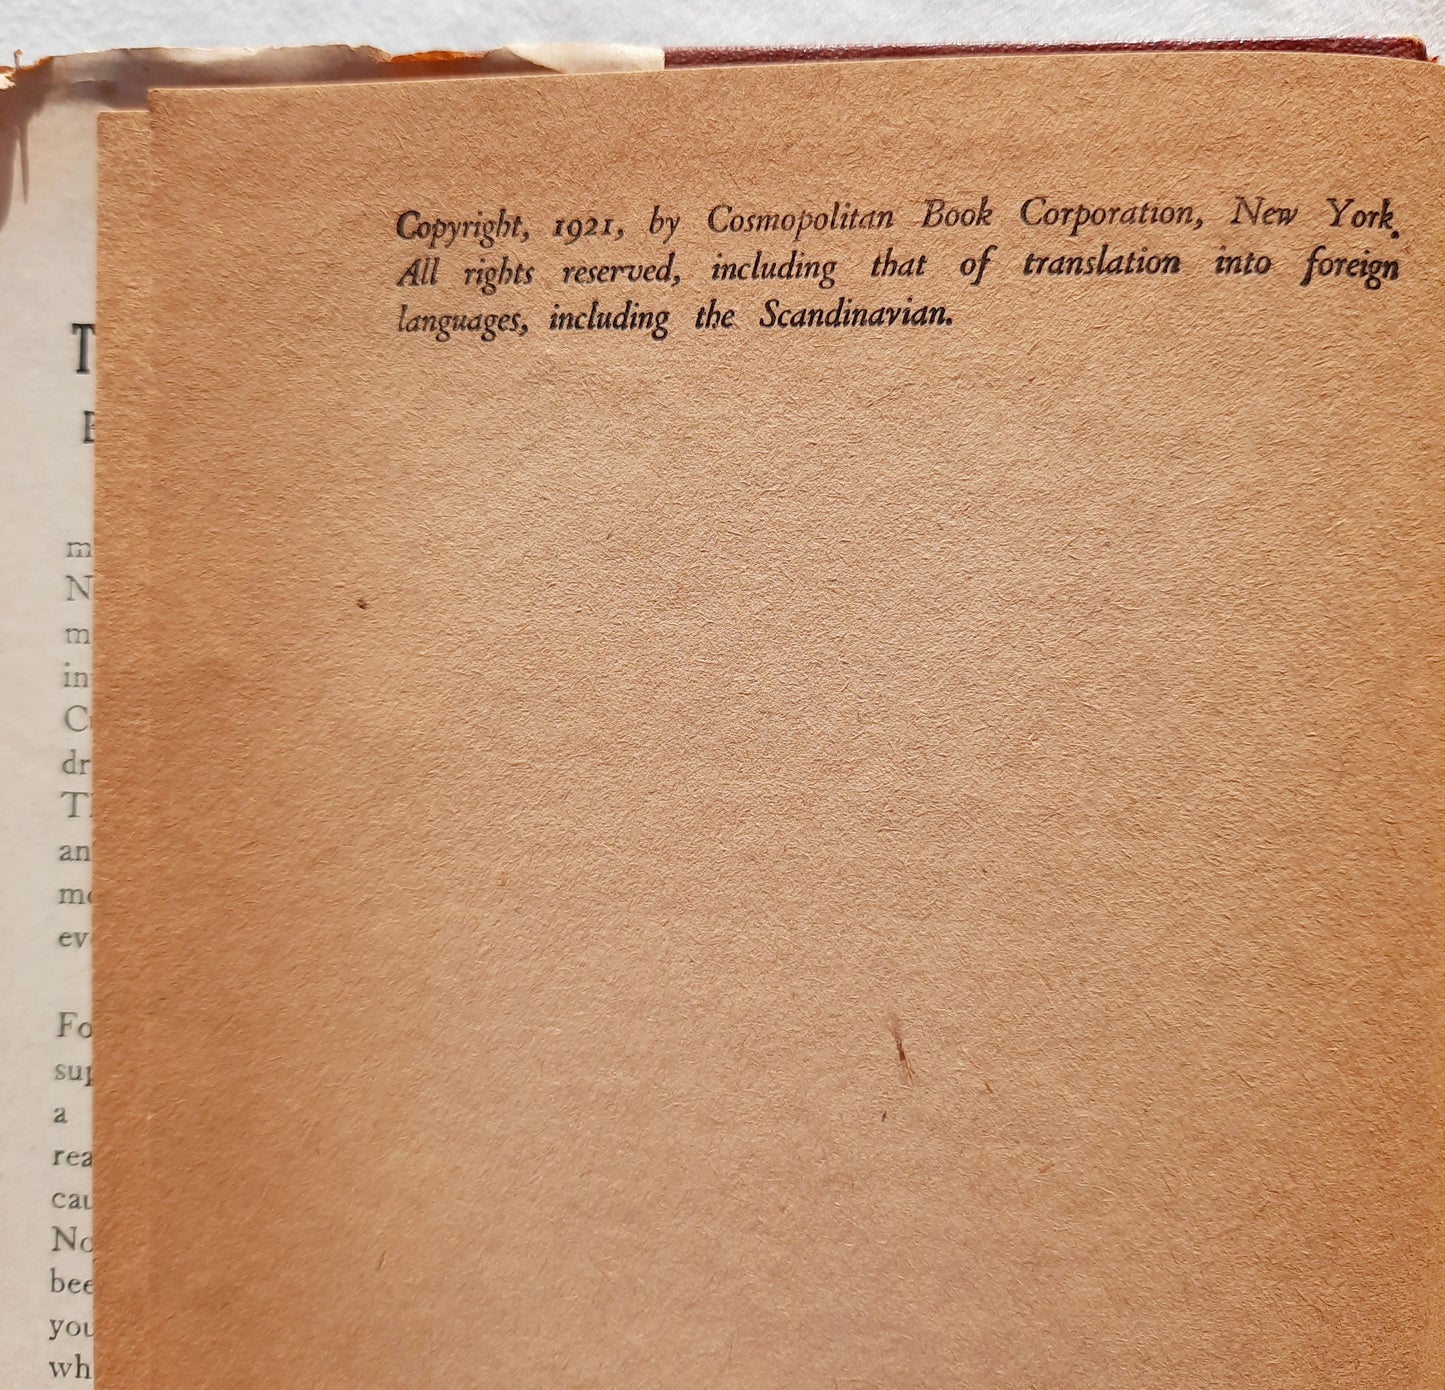 Copyright, 1921, by Cosmopolitan Book Corporation, New York.
All rights reserved, including that of translation into foreign
languages, including the Scandinavian.
T
m
N
m
in
C
dr
T
an
ev
Fo
sup
a
rea
cau
No
bee
you
wh